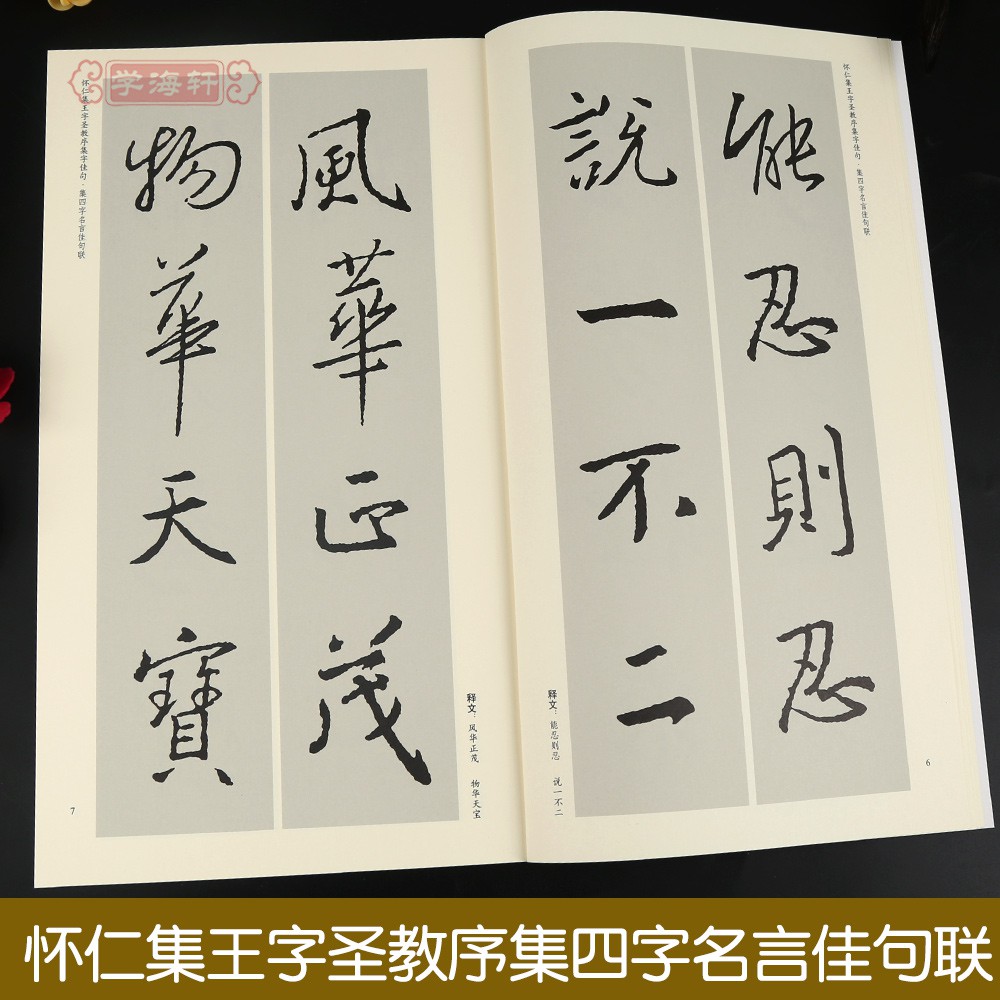 怀仁集王字圣教序集字佳句·集四字名言佳句联
能忍则忍
說一不二
释文：能忍则忍 说一不二
6
学海轩
風華正茂
物華天寶
释文：风华正茂 物华天宝
怀仁集王字圣教序集字佳句·集四字名言佳句联
7
怀仁集王字圣教序集四字名言佳句联